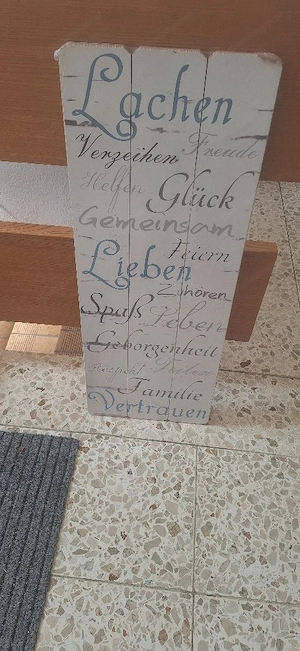 Lachen
Verzeihen Freude
Helfen Glück
Gemeinsam
Feiern
Lieben
Zuhören
Spaß Leben
Geborgenheit
Respekt
Familie
Vertrauen